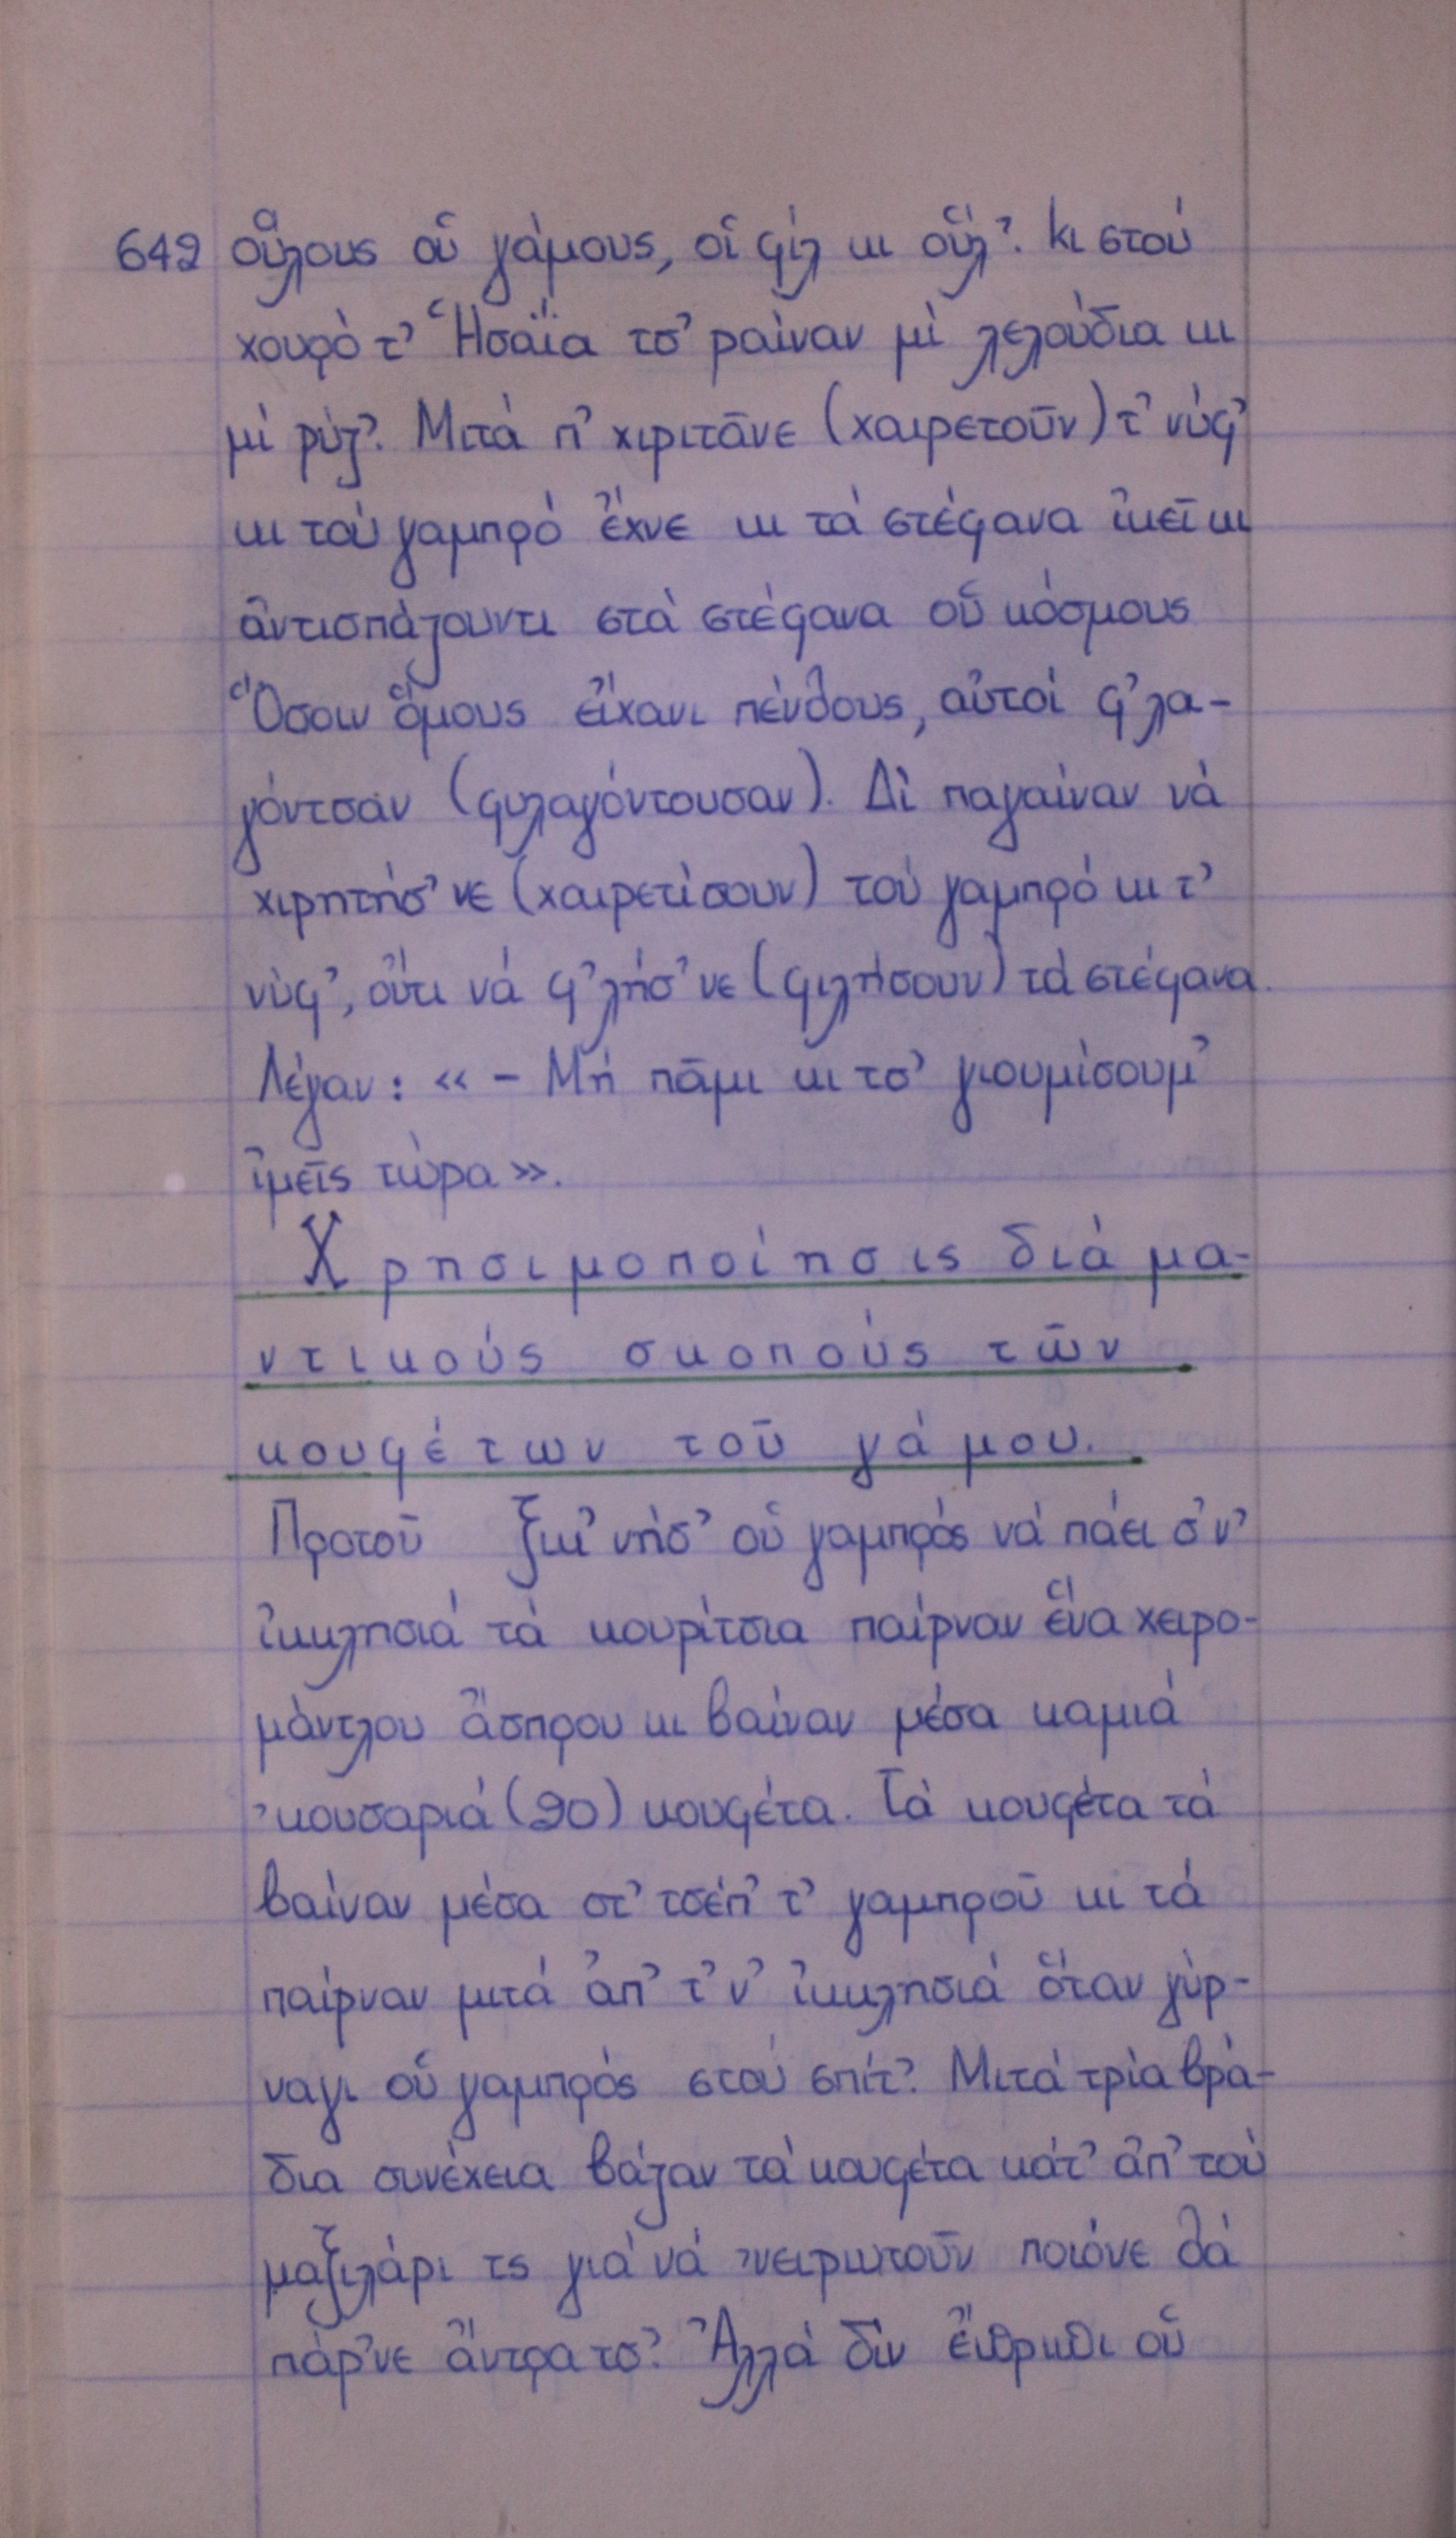 642 οὗλους οὗ γάμους, οἱ φίλ κι οὗλ'. Κι στού
χουρό τ' Ἡσαΐα τσ' ραίναν μί λελούδια κι
μί ρύζ'. Μιτά π' χιριτᾶνε (χαιρετοῦν) τ' νύφ'
κι τού γαμπρό ἔχνε κι τά στέφανα ἰκεῖ κι
ἀντισπάζουντι στά στέφανα οὗ κόσμους
Ὅσοιν ὅμους εἴχανι πένθους, αὐτοί φ'λα-
γόντσαν (φυλαγόντουσαν). Δί παγαίναν νά
χιρητήσ' νε (χαιρετίσουν) τού γαμπρό κι τ'
νύφ', οὔτι νά φ'λήσ' νε (φιλήσουν) τά στέφανα.
Λέγαν: «- Μή πᾶμι κι τσ' γιουμίσουμ'
ἰμεῖς τώρα».
Χρησιμοποίησις διά μα-
ντικούς σκοπούς τῶν
κουφέτων τοῦ γάμου.
Προτοῦ ξικ' νήσ' οὗ γαμπρός νά πάει σ'ν'
ἰκκλησιά τά κουρίτσια παίρναν ἕνα χειρο-
μάντλου ἄσπρου κι βαίναν μέσα καμιά
'κουσαριά (20) κουφέτα. Τά κουφέτα τά
βαίναν μέσα στ' τσέπ' τ' γαμπροῦ κι τά
παίρναν μιτά ἀπ' τ'ν' ἰκκλησιά ὅταν γύρ-
ναγι οὗ γαμπρός στού σπίτ'. Μιτά τρία βρά-
δια συνέχεια βάζαν τά κουφέτα κάτ' ἀπ' τού
μαξιλάρι τς γιά νά 'νειρωτοῦν ποιόνε θά
πάρ'νε ἄντρα τσ'. Ἀλλά δίν οὗ